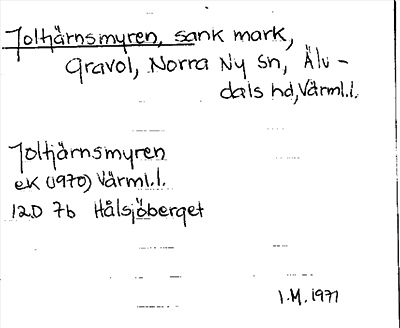 Joltjärnsmyren, sank mark,
Gravol, Norra Ny Sn, Älv-
dals hd, Värml.l.
Joltjärnsmyren
eK (1970) Värml.l.
12D 7b Hålsjöberget
I.M. 1971